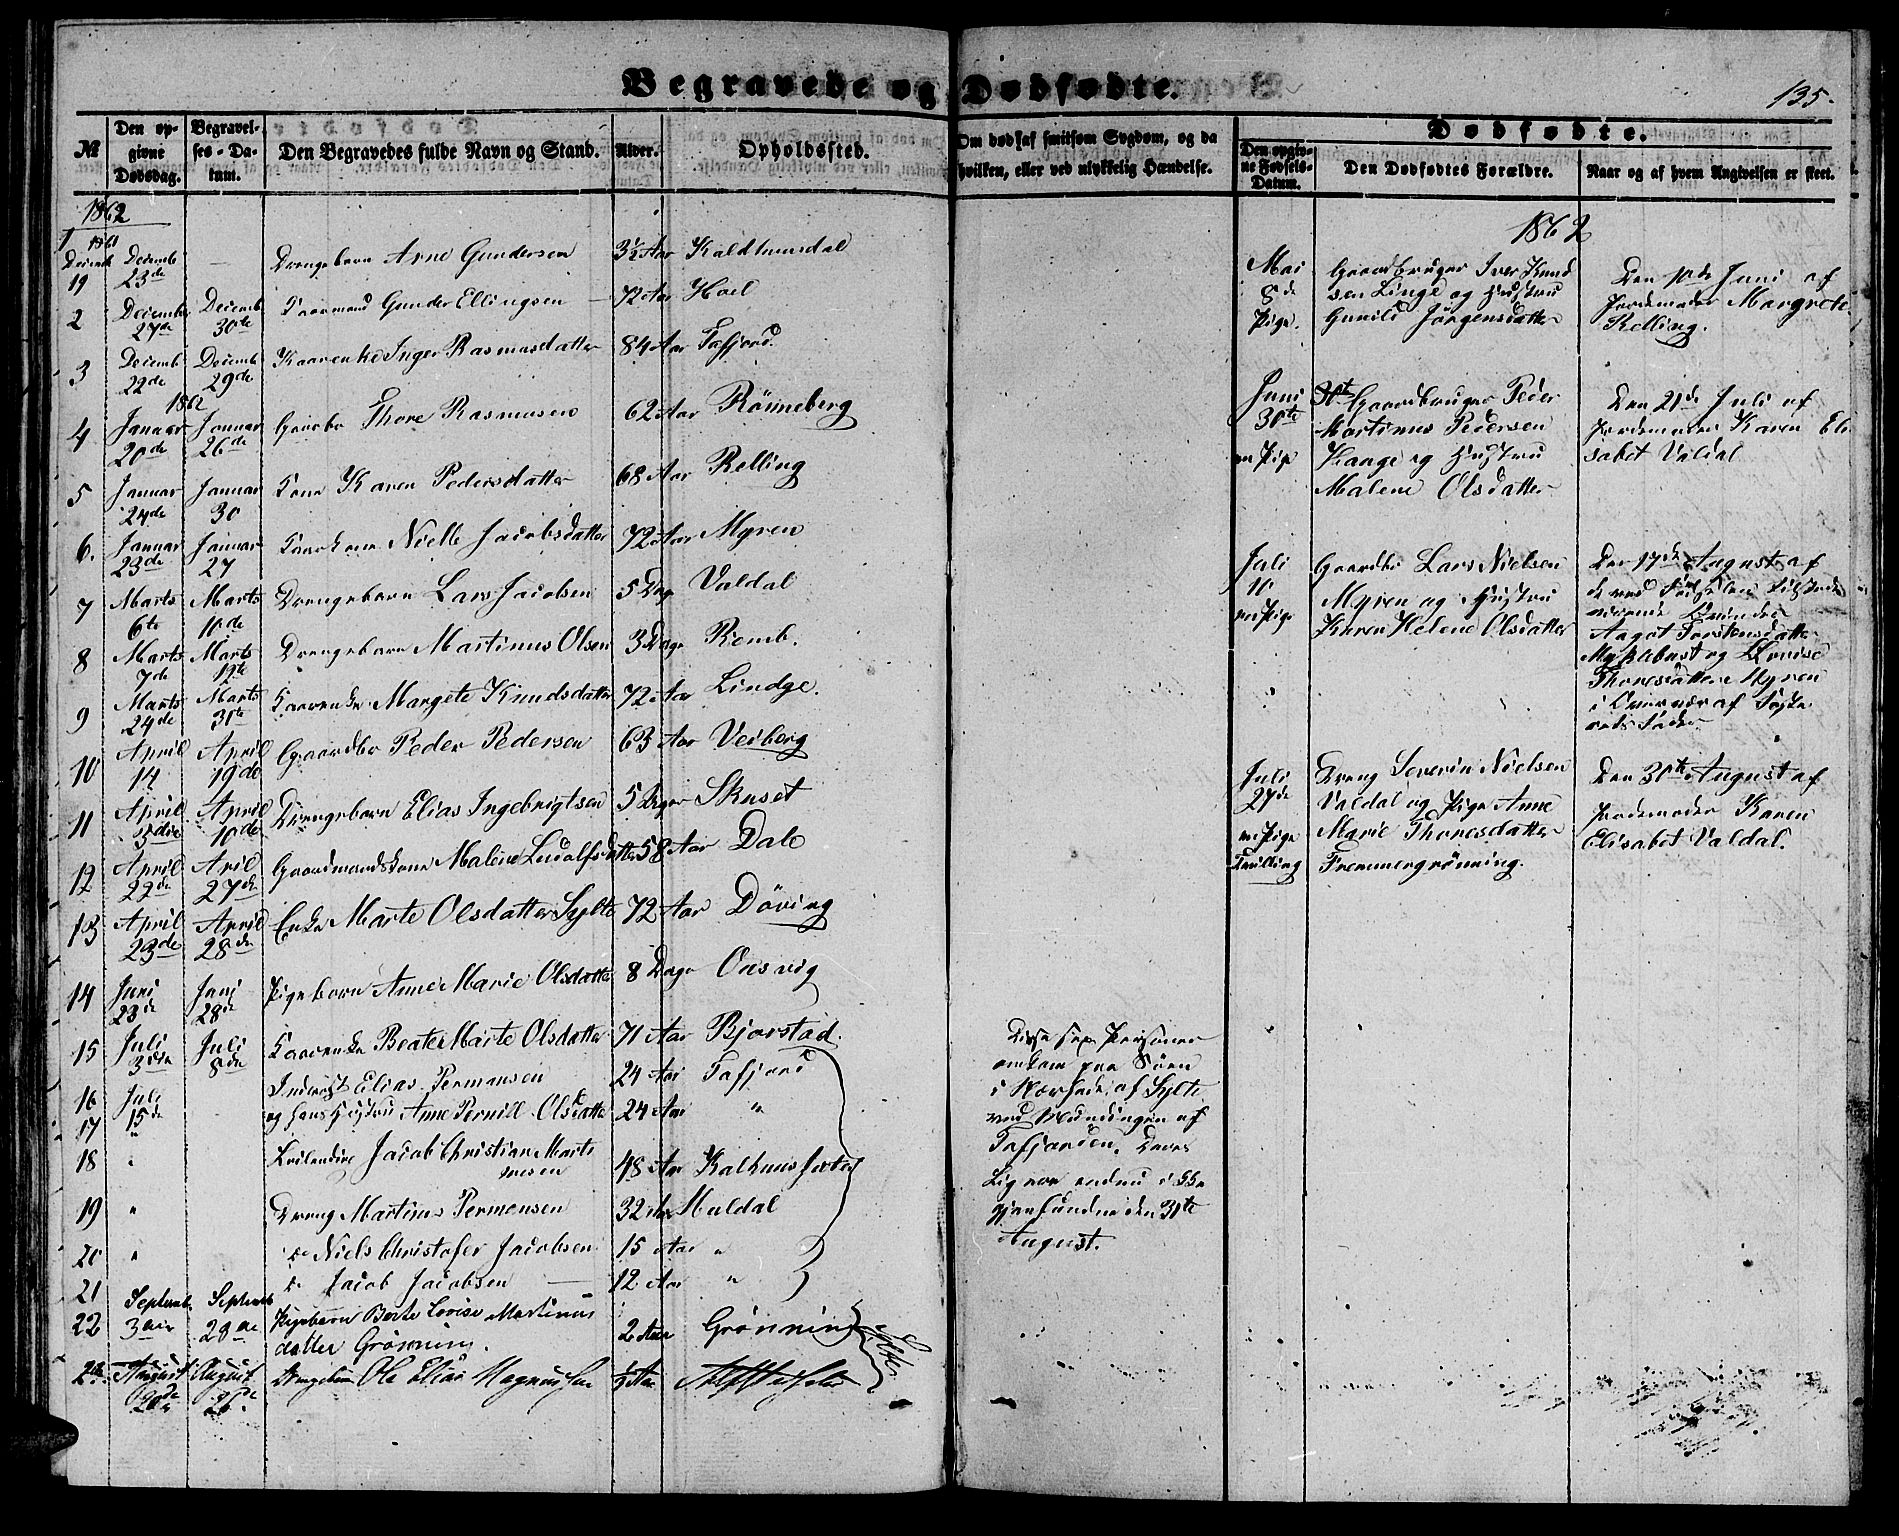 Begravede og Dødfødte.
135.
№
Den opgivne Dødsdag.
Begravelses-Datum.
Den Begravedes fulde Navn og Stand.
Alder.
Opholdssted.
Om død af smitsom Sygdom, og da
hvilken, eller ved ulykkelig Hændelse.
Dødfødte.
Den opgivne Fødsels-Datum.
Den Dødfødtes Forældre.
Naar og af hvem Angivelsen er skeet.
1862
1 1861 Decemb 19 Decemb 23de — Drengebarn Arne Gundersen 3½ Aar
2 Decembr 27de Decemb 30te Kaarmand Gunder Ellingsen — 72 Aar Hoel
3 Decemb 22de Decemb 29de Kaarenke Inger Rasmusdatter 84 Aar Tafjord
1862
4 Januar 20de Januar 26de Gaardbr Thore Rasmusen 62 Aar Rönneberg
5 Januar 24de Januar 30 Kone Karen Pedersdatter 68 Aar Relling
6. Januar 23de Januar 27 Kaarkone Nielle Jacobsdatter 72 Aar Myren
7 Marts 6te Marts 10de Drengebarn Lars Jacobsen 5 Dage Valdal
8 Marts 7de Marts 19te Drengebarn Martinus Olsen 3 Dage Remb.
9 Marts 24de Marts 31te Kaarenke Margete Knudsdatter 72 Aar Lindge.
10 April 14 April 19de Gaardbr Peder Pedersen 63 Aar Veiberg
11 April 5die April 10de Drengebarn Elias Ingebrigtsen 5 Dager Skuset
12 April 22de April 27de Gaardmandskone Malene Ludolfsdatter 58 Aar Dale
13 April 23de April 28de Enke Marte Olsdatter Sylte 72 Aar Döving
14 Juni 23de Juni 28de Pigebarn Anne Marie Olsdatter 8 Dage Onsvig
15 Juli 3die Juli 8de Kaarenke Beate Marte Olsdatter 71 Aar Bjorstad.
16 Juli 15de Inderst Elias Permansen 24 Aar Tafjord
17 " og hans Hustru Anne Pernill Olsdatter 24 Aar "
18 " Jacob Christian Martinusen 48 Aar
19 " Dreng Martinus Permansen 32 Aar Muldal
20 " do Niels Christofer Jacobsen 15 Aar "
21 do Jacob Jacobsen — 12 Aar "
22 Septemb. 3die Septemb 28de Pigebarn Berte Lovise Martinus
datter Grönning. 2 Aar Grönning
August 20de August 26de Drengebarn Ole Elias Magnussen ½ Aar
Disse sex Personer
omkom paa Söen
i Nærheden af Sylte
ved Mundingen af
Tafjorden. Deres
Lig var endnu i
gjenfundne den 31te
August.
1862
Mai 8de Pige.
Gaardbruger Iver Knud
sen Linge og Hustru
Gunild Jörgensdatter
Den 1ste Juni af
Jordemoder Margrete
Relling.
Juni 30te en Pige
Gaardbruger Peder
Martinus Pedersen
og Hustru
Malene Olsdatter
Den 21de Juli af
Jordemoder Karen Eli
sabet Valdal
Juli 10 en Pige
Gaardbr Lars Nielsen
Myren og Hustru
Karen Helene Olsdatter
Den 17de August af
de ved Födselen tilstede
værende Qvinder
Aagot Torstensdatter
Myklebust og Lovise
Thoresdatter Myren
i Nærvær af
Juli 27de en Pige Tvilling
Dreng Severin Nielsen
Valdal og Pige Anne
Marie Thoresdatter
Fremmergrönning.
Den 30te August af
Jordemoder Karen
Elisabet Valdal.